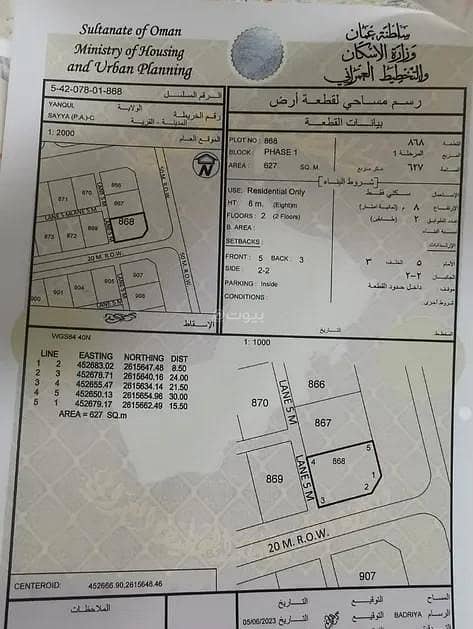 Sultanate of Oman
Ministry of Housing
and Urban Planning
سلطنة عمان
وزارة الإسكان
والتخطيط العمراني
5-42-078-01-868
الرقم المسلسل
YANQUL
الولاية
SAYYA (P.A.)-C
رقم الخريطة
المدينة - القرية
1: 2000
الموقع العام
رسم مساحي لقطعة أرض
بيانات القطعة
PLOT NO: 868 ٨٦٨ القطعة
BLOCK: PHASE 1 المرحلة 1 المربع
AREA: 627 SQ. M متر مربع ٦٢٧
شروط البناء
USE: Residential Only سكني فقط الاستعمال
HT : 8 m. (Eight)m ٨ م
FLOORS : 2 (2 Floors) ٢ (طابقين)
B. AREA :
SETBACKS : الإرتدادات
FRONT : 5 BACK : 3 ٣ الخلف ٥ الأمام
SIDE : 2-2 ٢-٢
PARKING : Inside داخل حدود القطعة موقف
CONDITIONS : شروط أخرى
871
870
866
867
LANE 5 M
868
873
872
869
20 M. R.O.W.
50 M. R.O.W.
908
907
900
901
904
LANE 5 M
الإسقاط
التاريخ
بيوت
WGS84 40N
1: 1000
LINE EASTING NORTHING DIST
1 2 452683.02 2615647.48 8.50
2 3 452678.71 2615640.16 24.00
3 4 452655.47 2615634.14 21.50
4 5 452650.13 2615654.96 30.00
5 1 452679.17 2615662.49 15.50
AREA = 627 SQ.m
866
870
LANE 5 M
867
5
4 868
1
869
LANE 5 M
2
3
20 M. R.O.W.
907
CENTEROID: 452666.90,2615648.46
الملاحظات
المساح
التوقيع
التاريخ
الرسام
BADRIYA
التوقيع
التاريخ
05/06/2023